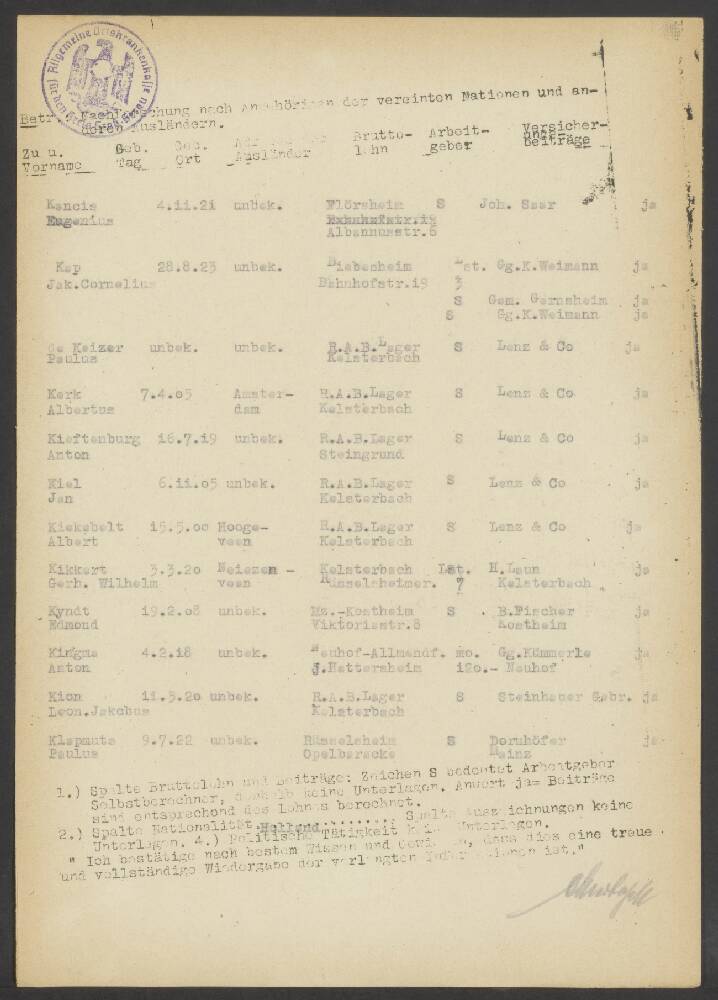 Allgemeine Ortskrankenkasse
Betr. Nachforschung nach Angehörigen der vereinten Nationen und an-
deren Ausländern.
Zu u. Geb. Geb. Brutto- Arbeit- Versicher-
Vorname Tag Ort Ausländer lohn geber beiträge
Kancis 4.11.21 unbek. Flörsheim S Joh. Saar ja
Eugenius Bahnhofstr.19
Albannusstr.6
Kap 28.8.23 unbek. Biebesheim Lst. Gg.K.Weimann ja
Jak.Cornelius Bahnhofstr.19 3
S Gem. Gernsheim ja
S Gg.K.Weimann ja
de Keizer unbek. unbek. R.A.B.Lager S Lenz & Co ja
Paulus Kelsterbach
Kerk 7.4.05 Amster- R.A.B.Lager S Lenz & Co ja
Albertus dam Kelsterbach
Kieftenburg 16.7.19 unbek. R.A.B.Lager S Lenz & Co ja
Anton Steingrund
Kiel 6.11.05 unbek. R.A.B.Lager S Lenz & Co ja
Jan Kelsterbach
Kiekebelt 15.5.00 Hooge- R.A.B.Lager S Lenz & Co ja
Albert veen Kelsterbach
Kikkert 3.3.20 Kelsterbach Lst. H.Laun ja
Gerh. Wilhelm veen Rüsselsheimer. 7 Kelsterbach
Kyndt 19.2.08 unbek. Mz.-Kostheim S B.Fischer ja
Edmond Viktoriastr.8 Kostheim
Kingma 4.2.18 unbek. Neuhof-Allmendf. mo. Gg.Kümmerle ja
Anton J.Hattersheim 120.- Neuhof
Kion 11.3.20 unbek. R.A.B.Lager S Steinhauer Gebr. ja
Leon.Jakobus Kelsterbach
Klapmuts 9.7.22 unbek. Rüsselsheim S Dornhöfer ja
Paulus Opelbaracke Heinz
1.) Spalte Bruttolohn und Beiträge: Zeichen S bedeutet Arbeitgeber
Selbstberechner, deshalb keine Unterlagen. Anwort ja= Beiträge
sind entsprechend des Lohnes berechnet.
2.) Spalte Nationalität.Holland......... Spalte Auszeichnungen keine
Unterlagen. 4.) Politische Tätigkeit keine Unterlagen.
" Ich bestätige nach bestem Wissen und Gewissen, dass dies eine treue
und vollständige Wiedergabe der verlangten Informationen ist."